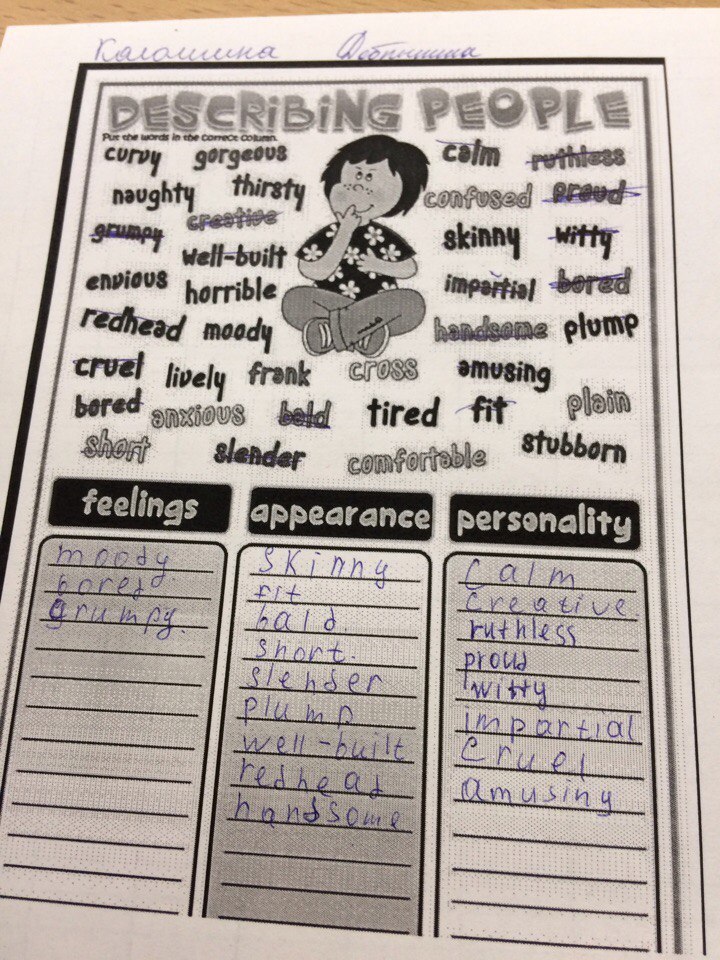 DESCRIBING PEOPLE
Put the words in the correct column.
curvy gorgeous calm ruthless
naughty thirsty confused proud
grumpy creative skinny witty
well-built
envious horrible impartial bored
redhead moody handsome plump
cruel lively frank cross amusing
bored anxious bald tired fit plain
short slender comfortable stubborn
feelings appearance personality
moody.
bored
grumpy.
skinny
fit
bald.
short.
slender
plump
well-built
redhead
handsome
Calm
Creative
ruthless
proud
witty
impartial
Cruel
amusing